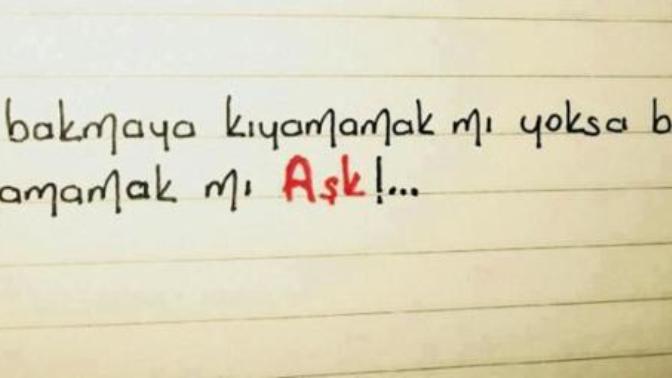 bakmaya kıyamamak mı yoksa b
amamak mı Aşk!...